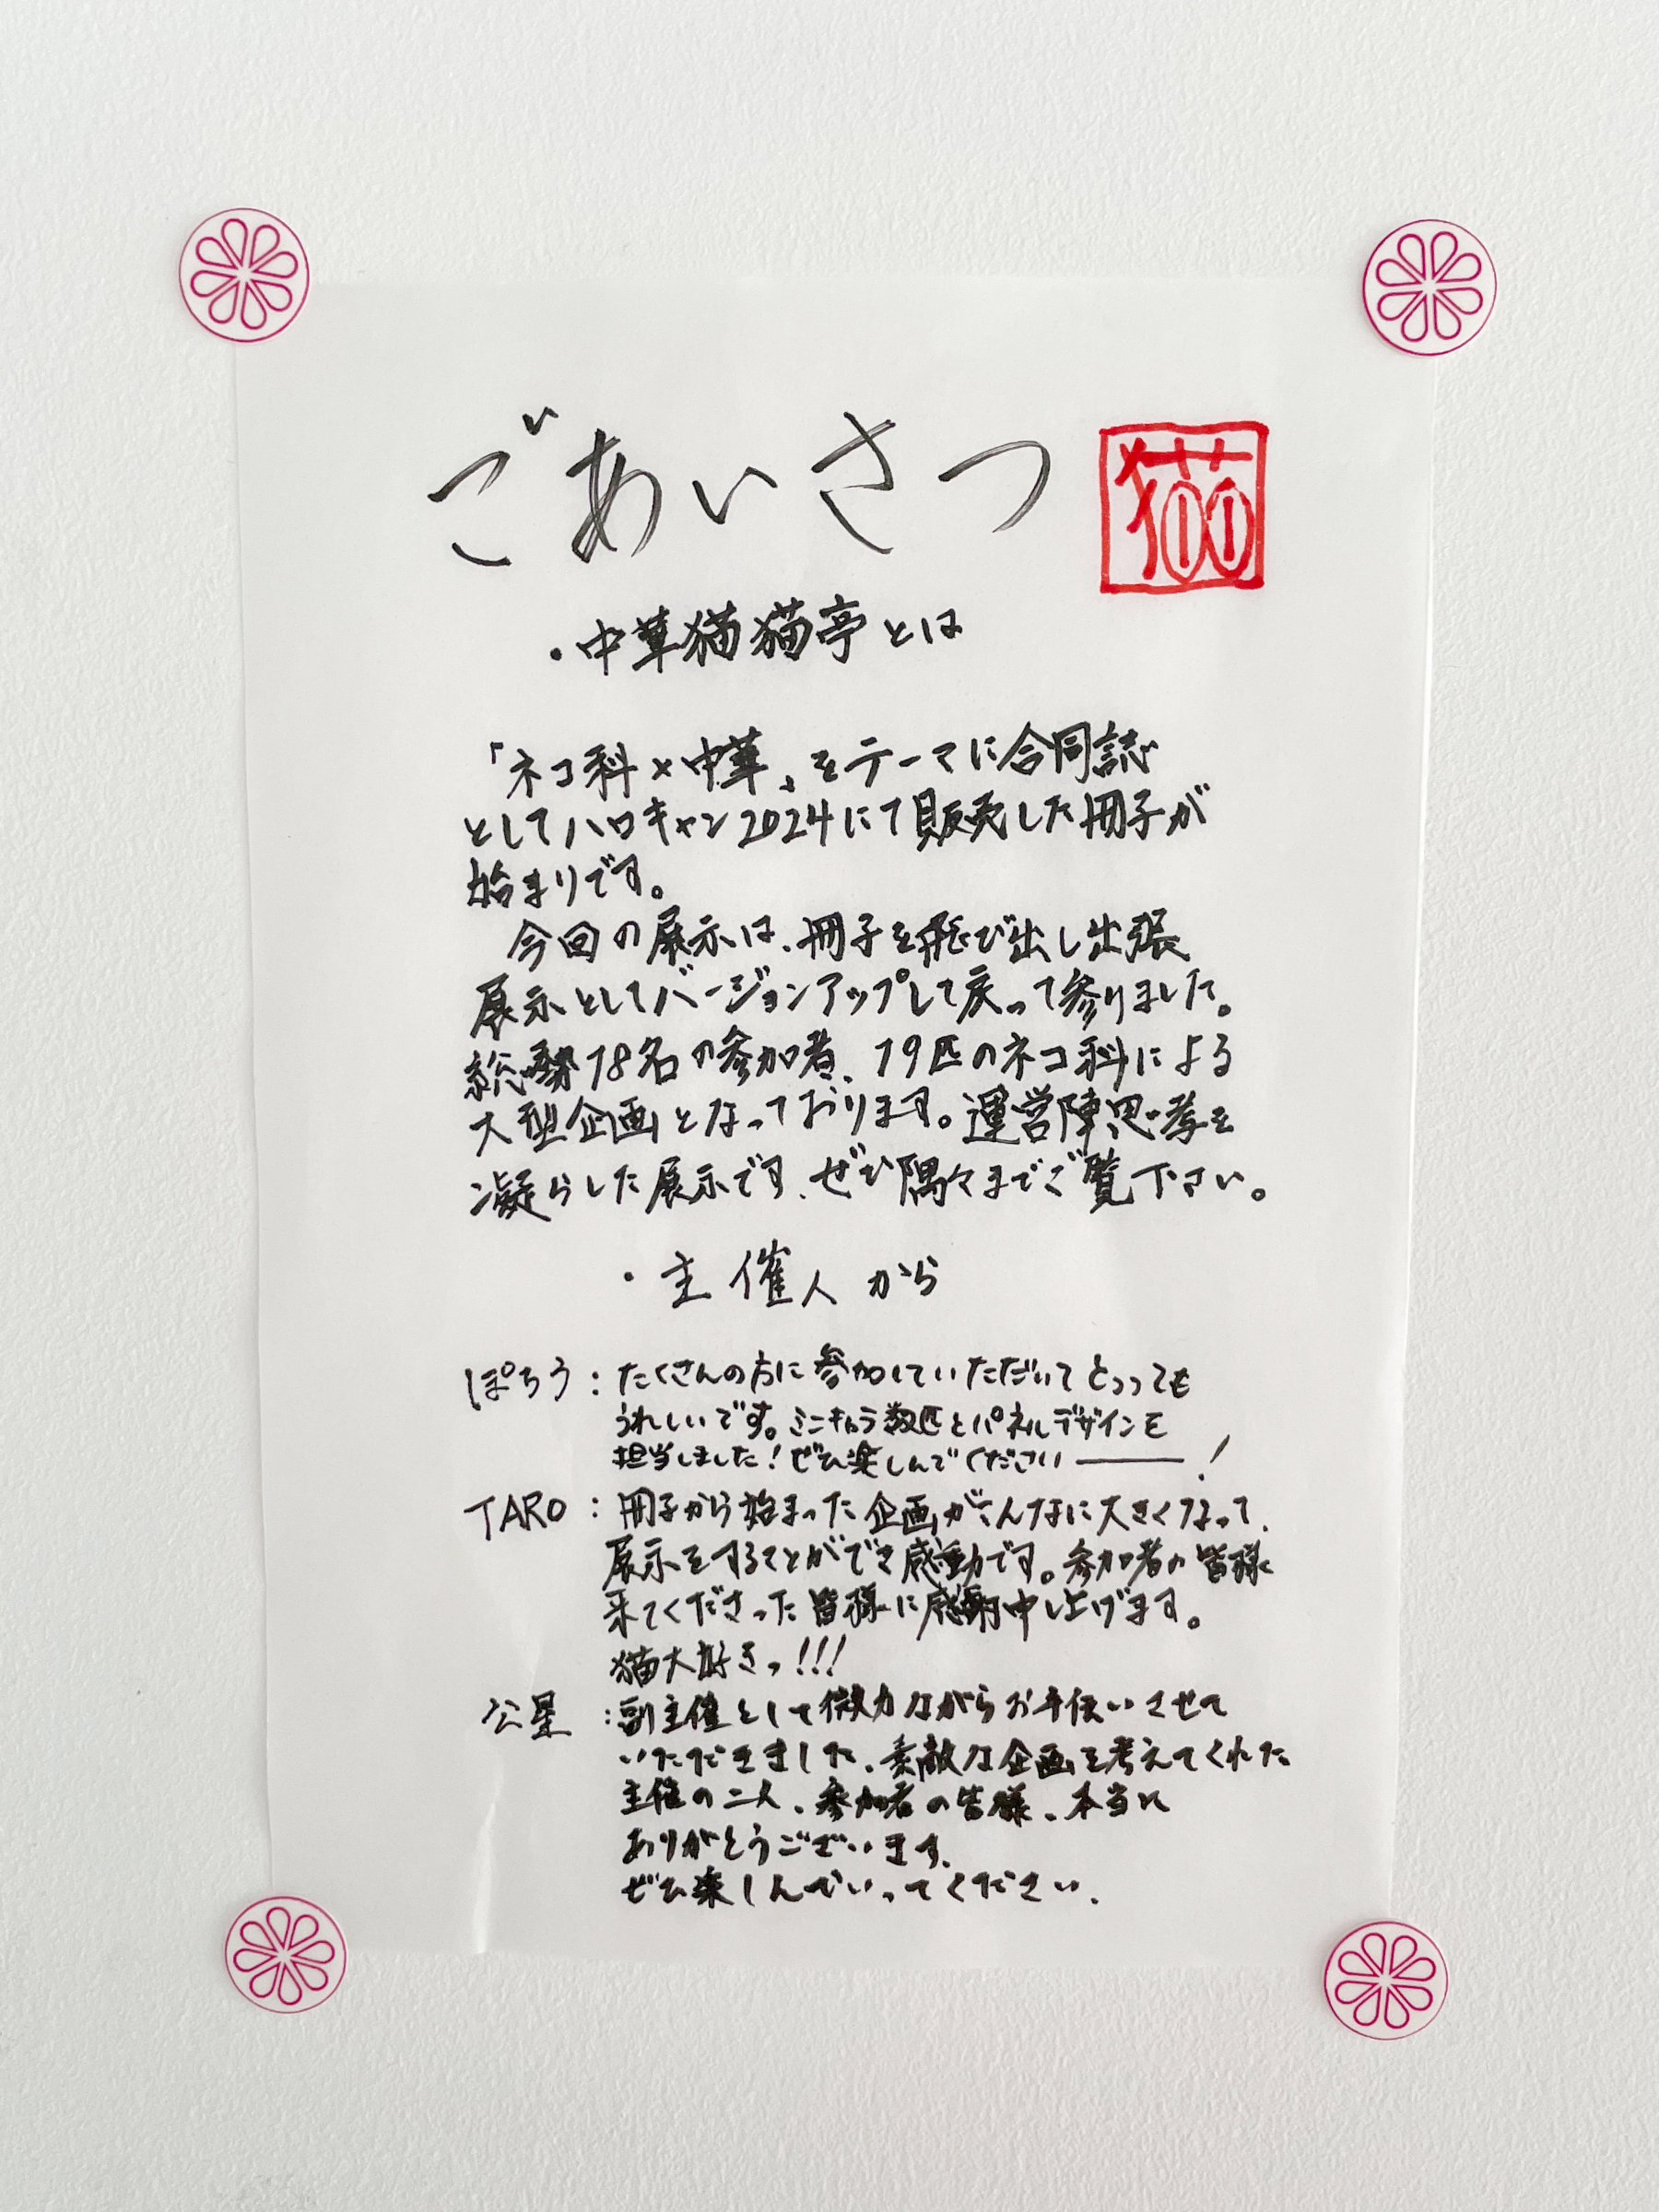 ごあいさつ
猫
・中華猫猫亭とは
「ネコ科×中華」をテーマに合同誌
としてハロキャン2024にて販売した冊子が
始まりです。
今回の展示は、冊子を飛び出し出張
展示としてバージョンアップして戻って参りました。
総勢18名の参加者、19匹のネコ科による
大型企画となっております。運営陣思考を
凝らした展示です、ぜひ隅々までご覧下さい。
・主催人から
ぽちう：たくさんの方に参加していただいてとっっても
うれしいです。ミニキャラ数匹とパネルデザインを
担当しました！ぜひ楽しんでください――！
TARO：冊子から始まった企画がこんなに大きくなって、
展示をすることができ感動です。参加者の皆様
来てくださった皆様に感謝申し上げます。
猫大好きっ!!!
公星：副主催として微力ながらお手伝いさせて
いただきました、素敵な企画を考えてくれた
主催の二人、参加者の皆様、本当に
ありがとうございます、
ぜひ楽しんでいってください、